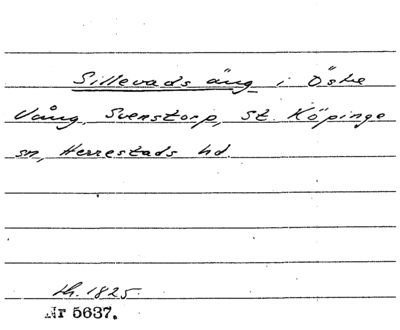 Sillevads äng i Östre
Vång, Svenstorp, St. Köpinge
sn, Herrestads hd.
lh. 1825.
Nr 5637.